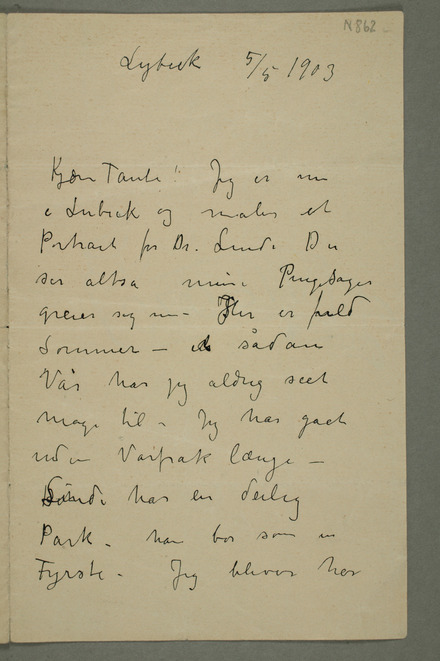 N 862
Lybeck 5/5 1903
Kjære Tante! Jeg er nu
i Lubeck og maler et
Portræt for Dr. Linde Du
ser altsa mine Pengesager
greier sig nu – Her er fuld
Sommer – sådan
Vår har jeg aldrig seet
mage til – Jeg har gaaet
uden Vårfrak længe –
Linde har en deilig
Park – han bor som en
Fyrste – Jeg bliver her